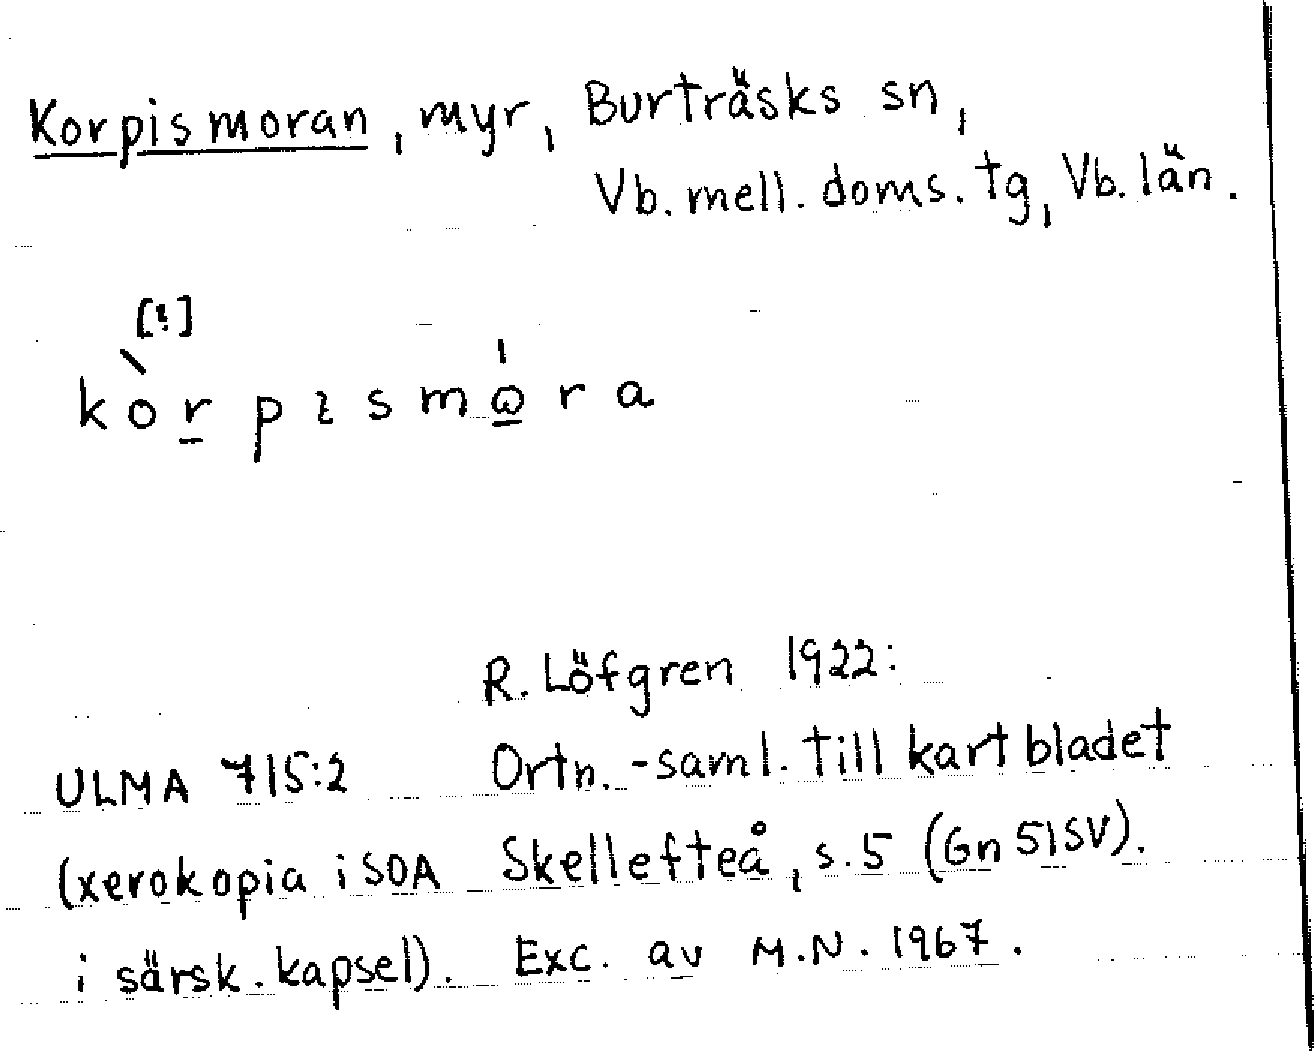 Korpismoran, myr, Burträsks sn,
Vb. mell. doms. tg, Vb. län.
[!]
kòr̲pɩsmo̲ra
R. Löfgren 1922:
ULMA 715:2 Ortn.-saml. till kartbladet
(xerokopia i SOA Skellefteå, s. 5 (Gn 51SV).
i särsk. kapsel). Exc. av M.N. 1967.